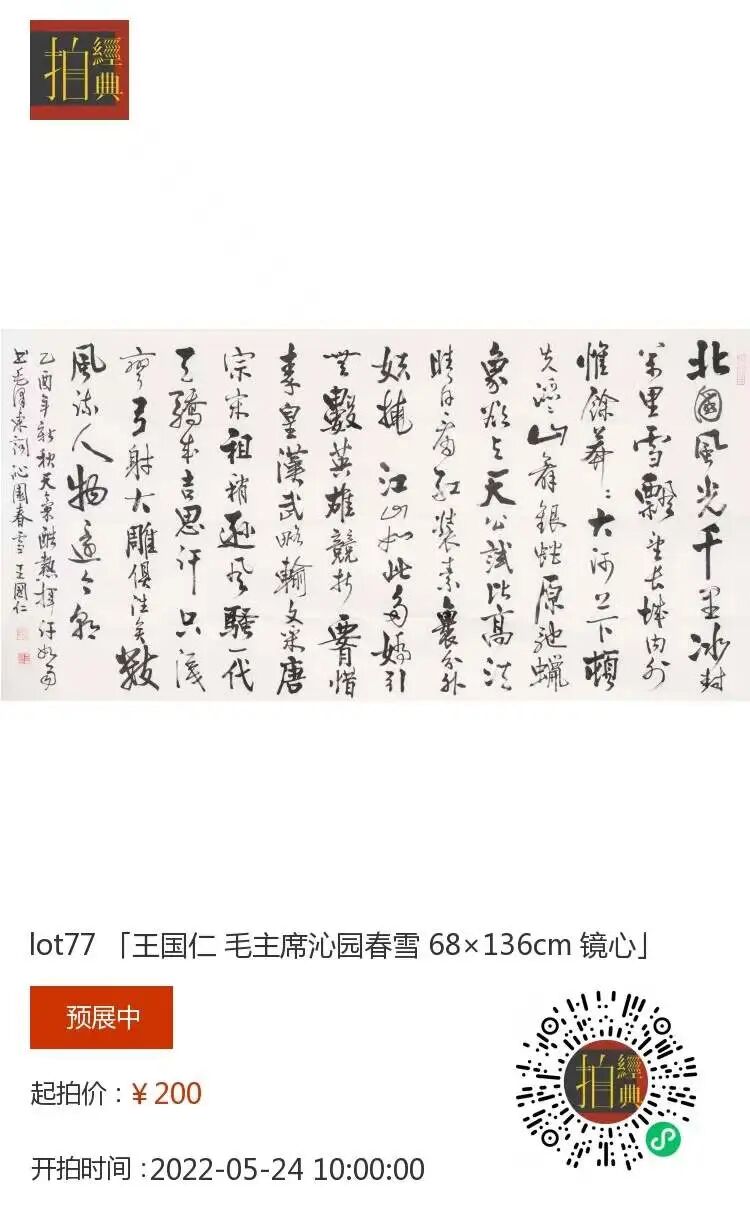 經典
拍
北國風光千里冰封
萬里雪飄望長城内外
惟餘莽〻大河上下頓
失滔〻山舞銀蛇原馳蠟
象欲与天公試比高須
晴日看紅裝素裹分外
妖嬈江山如此多嬌引
無數英雄競折腰惜
秦皇漢武略輸文采唐
宗宋祖稍遜風騷一代
天驕成吉思汗只識
彎弓射大雕俱往矣數
風流人物還看今朝
乙酉年新秋天氣酷熱揮汗如雨
书毛澤東詞沁園春雪王國仁
lot77 「王国仁 毛主席沁园春雪 68×136cm 镜心」
预展中
起拍价：¥ 200
开拍时间 :2022-05-24 10:00:00
經典
拍